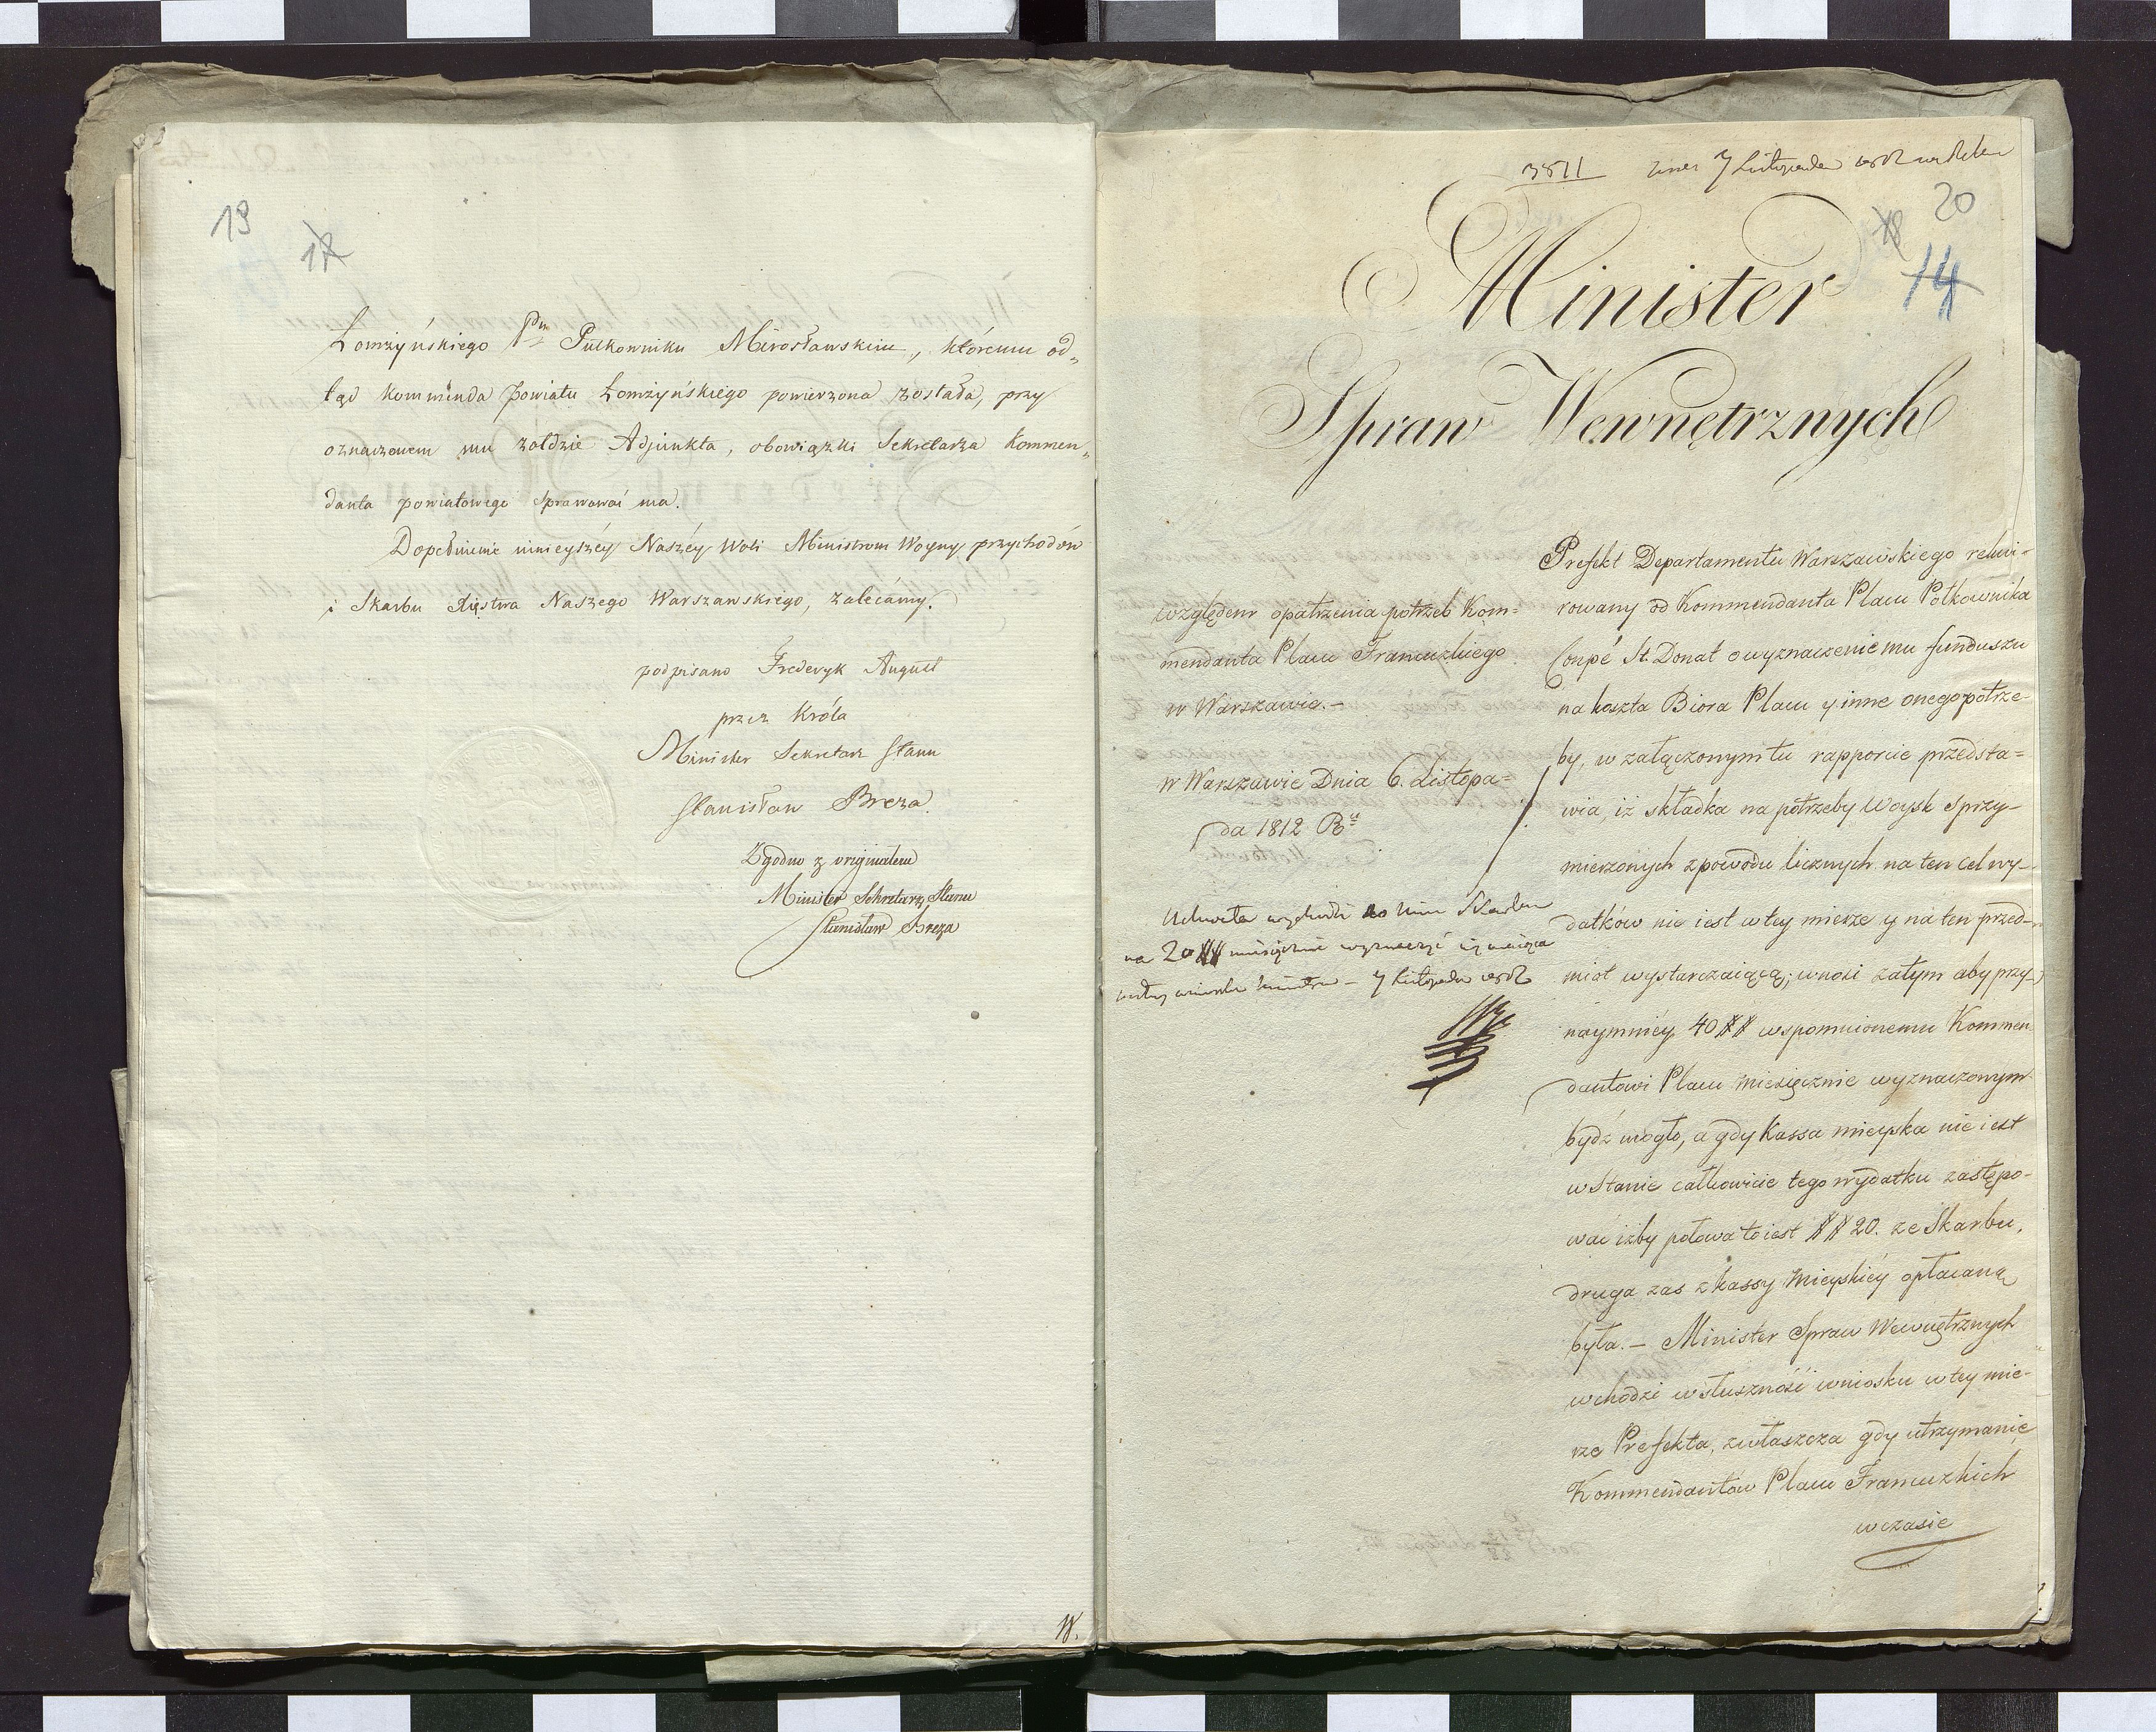 19
17
Łomżyńskiego Pu Pułkowniku Mirosławskim, któremu od„
tąd kommenda powiatu Łomżyńskiego powierzona została, przy
oznaczonem mu żołdzie Adjunkta, obowiązki Sekretarza Kommen„
danta powiatowego sprawować ma.
Dopełnienie ninieyszéy Naszéy Woli Ministrom Woyny, przychodów
i Skarbu Xięstwa Naszego Warszawskiego, zalecámy.
podpisano Frederyk August
przez Króla
Minister Sekretarz Stanu
Stanisław Breza
Zgodno z originałem
Minister Sekretarz Stanu
Stanisław Breza
W.
3511 7 Listopada
20
18
14
Minister
Spraw Wewnętrznych
względem opatrzenia potrzeb Kom=
mendanta Placu Francuzkiego
w Warszawie.-
w Warszawie Dnia 6. Listopa=
da 1812 Ru
Uchwała wychodzi do Skarbu
na 20 ## miesięcznie
7 Listopada
Prefekt Departamentu Warszawskiego rekwi-
rowany od Kommendanta Placu Półkownika
Coupé St. Donat o wyznaczenie mu funduszu
na koszta Biora Placu y inne onego potrze-
by, w załączonym tu rapporcie przedsta=
wia, iż składka na potrzeby Woysk sprzy-
mierzonych z powodu licznych na ten cel wy-
datków nie iest w tey mierze y na ten przed-
miot wystarczaiącą; wnosi zatym aby przy-
naymniéy 40 ## wspomnionemu Kommen
dantowi Placu miesięcznie wyznaczonym
bydź mogło, a gdy Kassa mieyska nie iest
w stanie całkowicie tego wydatku zastępo-
wać iżby połowa to iest ## 20. ze Skarbu,
druga zas z kassy Mieyskiéy opłacaną
była. - Minister Spraw Wewnętrznych
wchodzi w słuszność wniosku w tey mie-
rze Prefekta, zwłaszcza gdy utrzymanie
Kommendantow Placu Francuzkich
w czasie